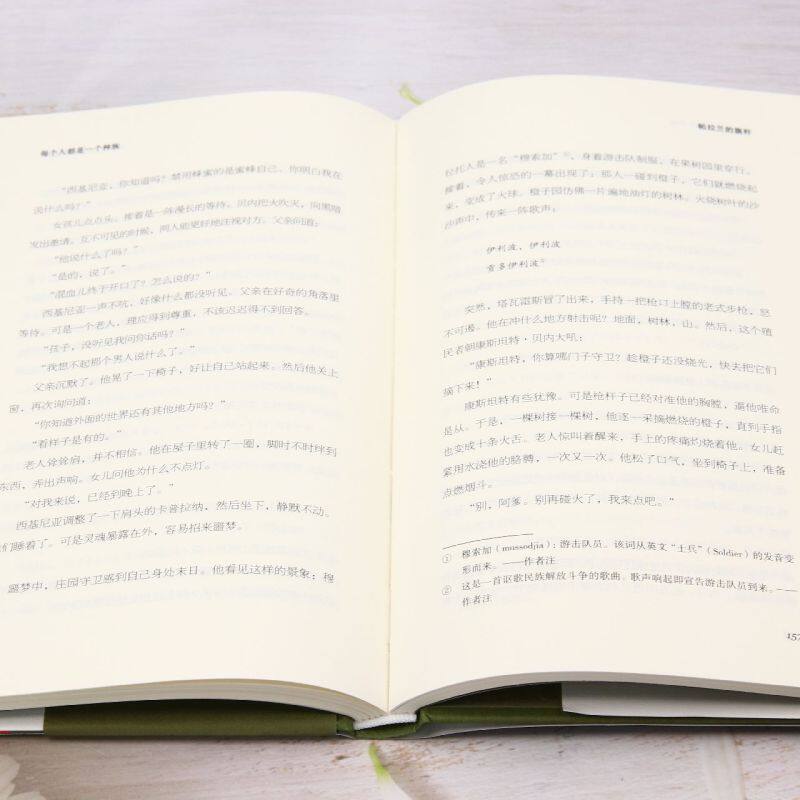 每个人都是一个种族
“西基尼亚，你知道吗？禁用蜂蜜的是蜜蜂自己。你明白我在
说什么吗？”
女孩儿点点头。接着是一阵漫长的等待。贝内把火吹灭，向黑暗
发出邀请。互不可见的时候，两人能更好地注视对方。父亲问道：
“他说什么了吗？”
“是的，说了。”
“混血儿终于开口了？怎么说的？”
西基尼亚一声不吭，好像什么都没听见。父亲在好奇的角落里
等待。可是一个老人，理应得到尊重，不该迟迟得不到回答。
“孩子，没听见我问你话吗？”
“我想不起那个男人说什么了。”
父亲沉默了。他晃了一下椅子，好让自己站起来。然后他关上
窗，再次询问道：
“你知道外面的世界还有其他地方吗？”
“看样子是有的。”
老人耸耸肩，并不相信。他在屋子里转了一圈，脚时不时绊到
东西，弄出声响。女儿问他为什么不点灯。
“对我来说，已经到晚上了。”
西基尼亚调整了一下肩头的卡普拉纳，然后坐下，静默不动。
们睡着了。可是灵魂暴露在外，容易招来噩梦。
噩梦中，庄园守卫感到自己身处末日。他看见这样的景象：穆
帕拉兰的旗杆
拉托人是一名“穆索加”①，身着游击队制服，在果树园里穿行。
接着，令人惊恐的一幕出现了：那人一碰到橙子，它们就燃烧起
来，变成了火球。橙子园仿佛一片遍地油灯的树林。火烧树叶的沙
沙声中，传来一阵歌声：
伊利波，伊利波
壹多伊利波②
突然，塔瓦雷斯冒了出来，手持一把枪口上膛的老式步枪，怒
不可遏。他在冲什么地方射击呢？地面，树林，山。然后，这个殖
民者朝康斯坦特·贝内大吼：
“康斯坦特，你算哪门子守卫？趁橙子还没烧光，快去把它们
摘下来！”
康斯坦特有些犹豫。可是枪杆子已经对准他的胸膛，逼他唯命
是从。于是，一棵树接一棵树，他逐一采摘燃烧的橙子，直到手指
也变成十条火舌。老人惊叫着醒来，手上的疼痛灼烧着他。女儿赶
紧用水浇他的胳膊，一次又一次。他松了口气，坐到椅子上，准备
点燃烟斗。
“别，阿爹。别再碰火了，我来点吧。”
① 穆索加（mussodjia）：游击队员。该词从英文“士兵”（Soldier）的发音变
形而来。——作者注
② 这是一首讴歌民族解放斗争的歌曲。歌声响起即宣告游击队员到来。——
作者注
157